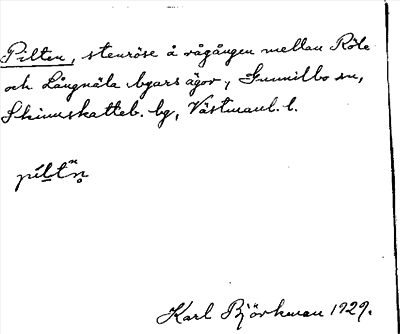 Pilten, stenröse å rågången mellan Röle
och Långnäla byars ägor, Gunnilbo sn,
Skinnskatteb. bg, Västmanl. l.
pilt
Karl Björkman 1929.